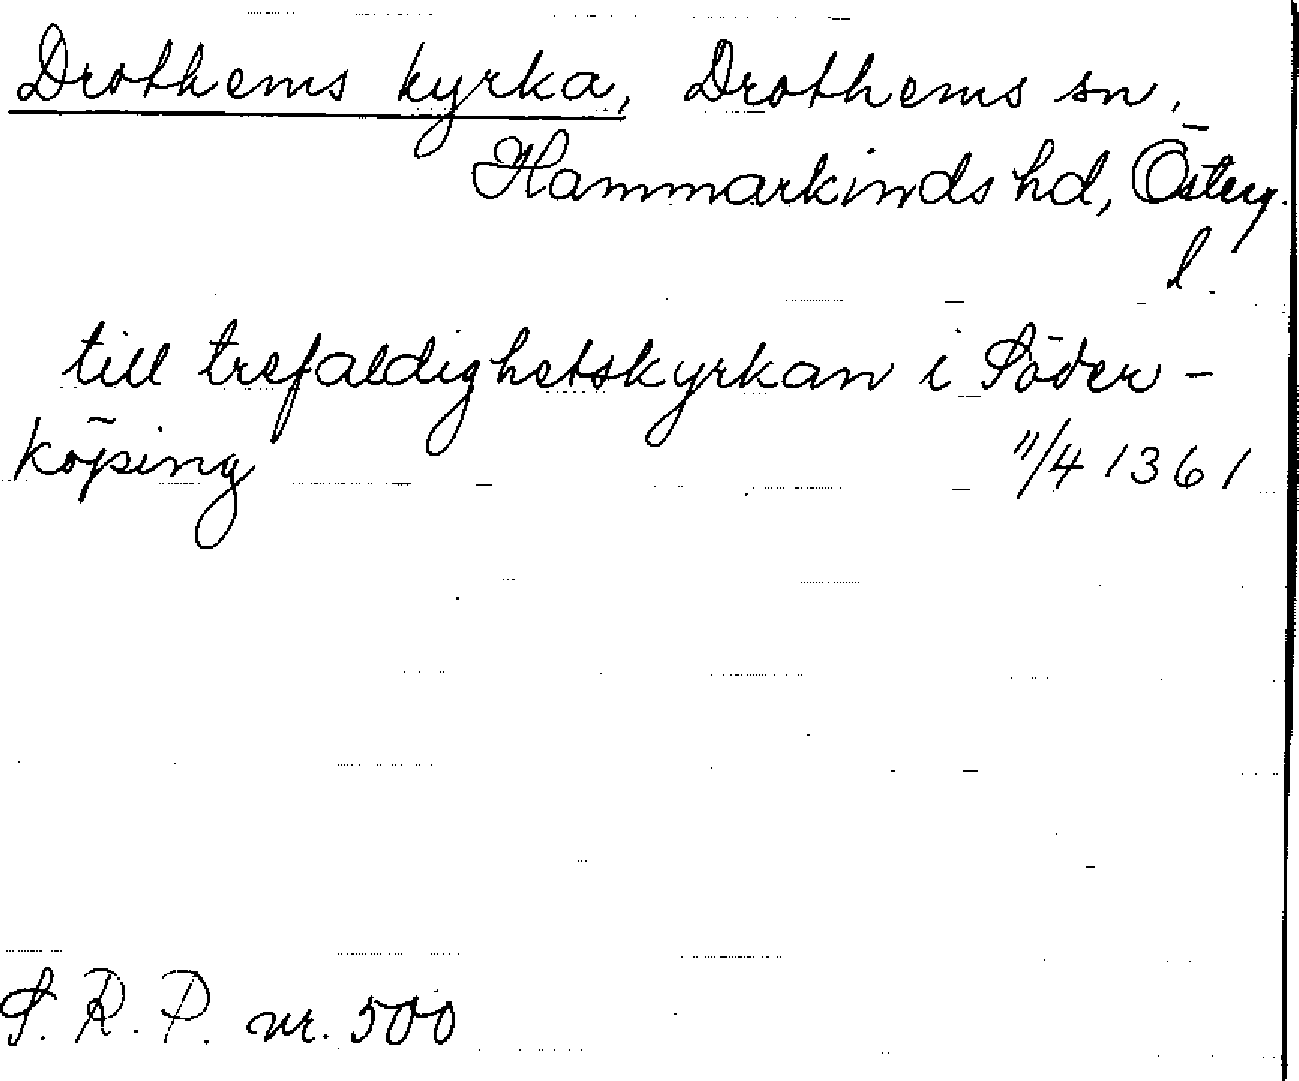 Drothems kyrka, Drothems sn,
Hammarkinds hd, Österg.
l.
till trefaldighetskyrkan i Söder-
köping 11/4 1361
S. R. P. nr. 500